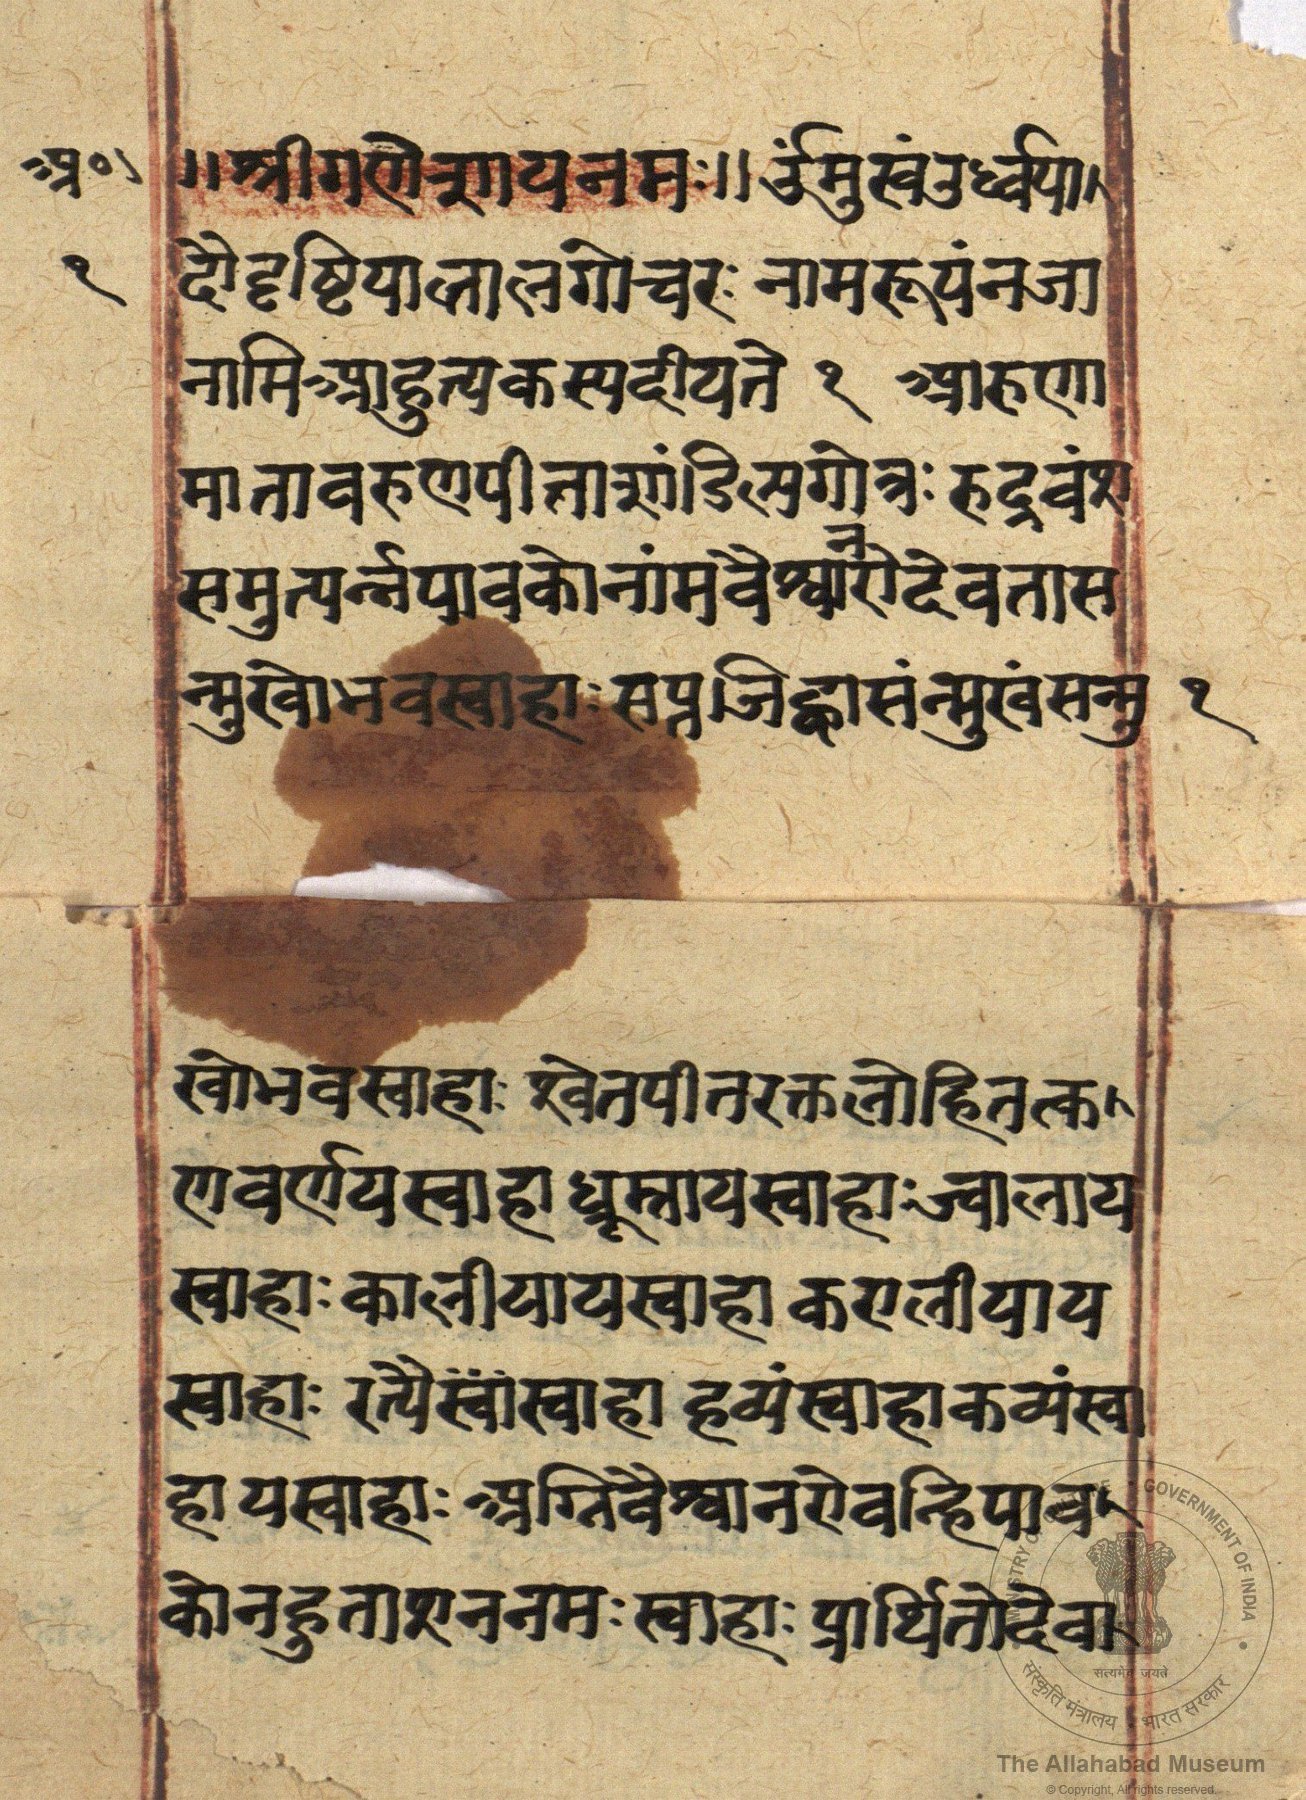 अ०। ॥श्रीगणेशायनमः॥ ॐमुखंउर्ध्वपा
१ दौदृष्टियात्नालगोचरः नामरूपंनजा
नामिआहुत्यकस्यदीयते १ आरुणा
मातावरुणपीताशांडिलगोत्रः रुद्रवंश
समुत्पर्न्नपावकोनांमवैश्वानरोदेवतास
न्मुखोभवस्वाहाः सप्तजिह्वासंन्मुखंसन्मु १
खोभवस्वाहाः श्वेतपीतरक्तलोहितत्क
णवर्णयस्वाहा धूम्रायस्वाहाःज्वालाय
स्वाहाः कालीयायस्वाहा करालीयाय
स्वाहाः स्वाहा हव्यंस्वाहाकव्यंस्वा
हायस्वाहाः अग्निवैश्वानरोवन्हिपाव
कोनहुताशननमः स्वाहाः प्रार्थितोदेवा
MINISTRY OF CULTURE • GOVERNMENT OF INDIA
सत्यमेव जयते
संस्कृति मंत्रालय • भारत सरकार
The Allahabad Museum
© Copyright, All rights reserved.